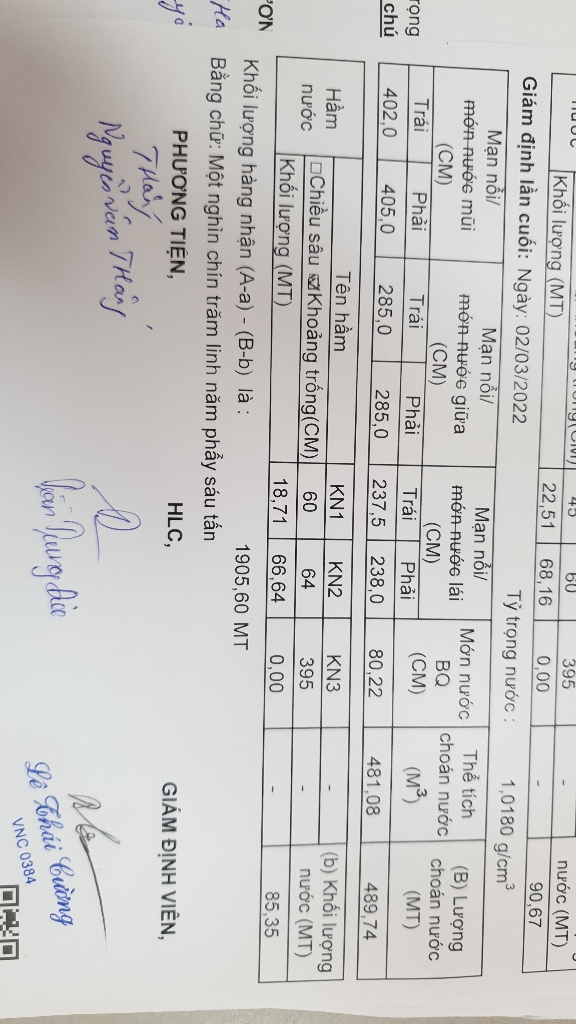 Khối lượng (MT) 22,51 68,16 0,00 - nước (MT) 90,67
45 60 395 -
Giám định lần cuối: Ngày: 02/03/2022 Tỷ trọng nước : 1,0180 g/cm³
Mạn nổi/ mớn nước mũi (CM) Mạn nổi/ mớn nước giữa (CM) Mạn nổi/ mớn nước lái (CM) Mớn nước BQ (CM) Thể tích choán nước (M³) (B) Lượng choán nước (MT)
Trái Phải Trái Phải Trái Phải
402,0 405,0 285,0 285,0 237,5 238,0 80,22 481,08 489,74
Hầm nước Tên hầm KN1 KN2 KN3 - (b) Khối lượng nước (MT)
☐Chiều sâu ☑Khoảng trống(CM) 60 64 395 -
Khối lượng (MT) 18,71 66,64 0,00 - 85,35
Khối lượng hàng nhận (A-a) - (B-b) là : 1905,60 MT
Bằng chữ: Một nghìn chín trăm linh năm phẩy sáu tấn
PHƯƠNG TIỆN, HLC, GIÁM ĐỊNH VIÊN,
Thắng
Nguyễn Văn Thắng
Lê Thái Cường
VNC 0384